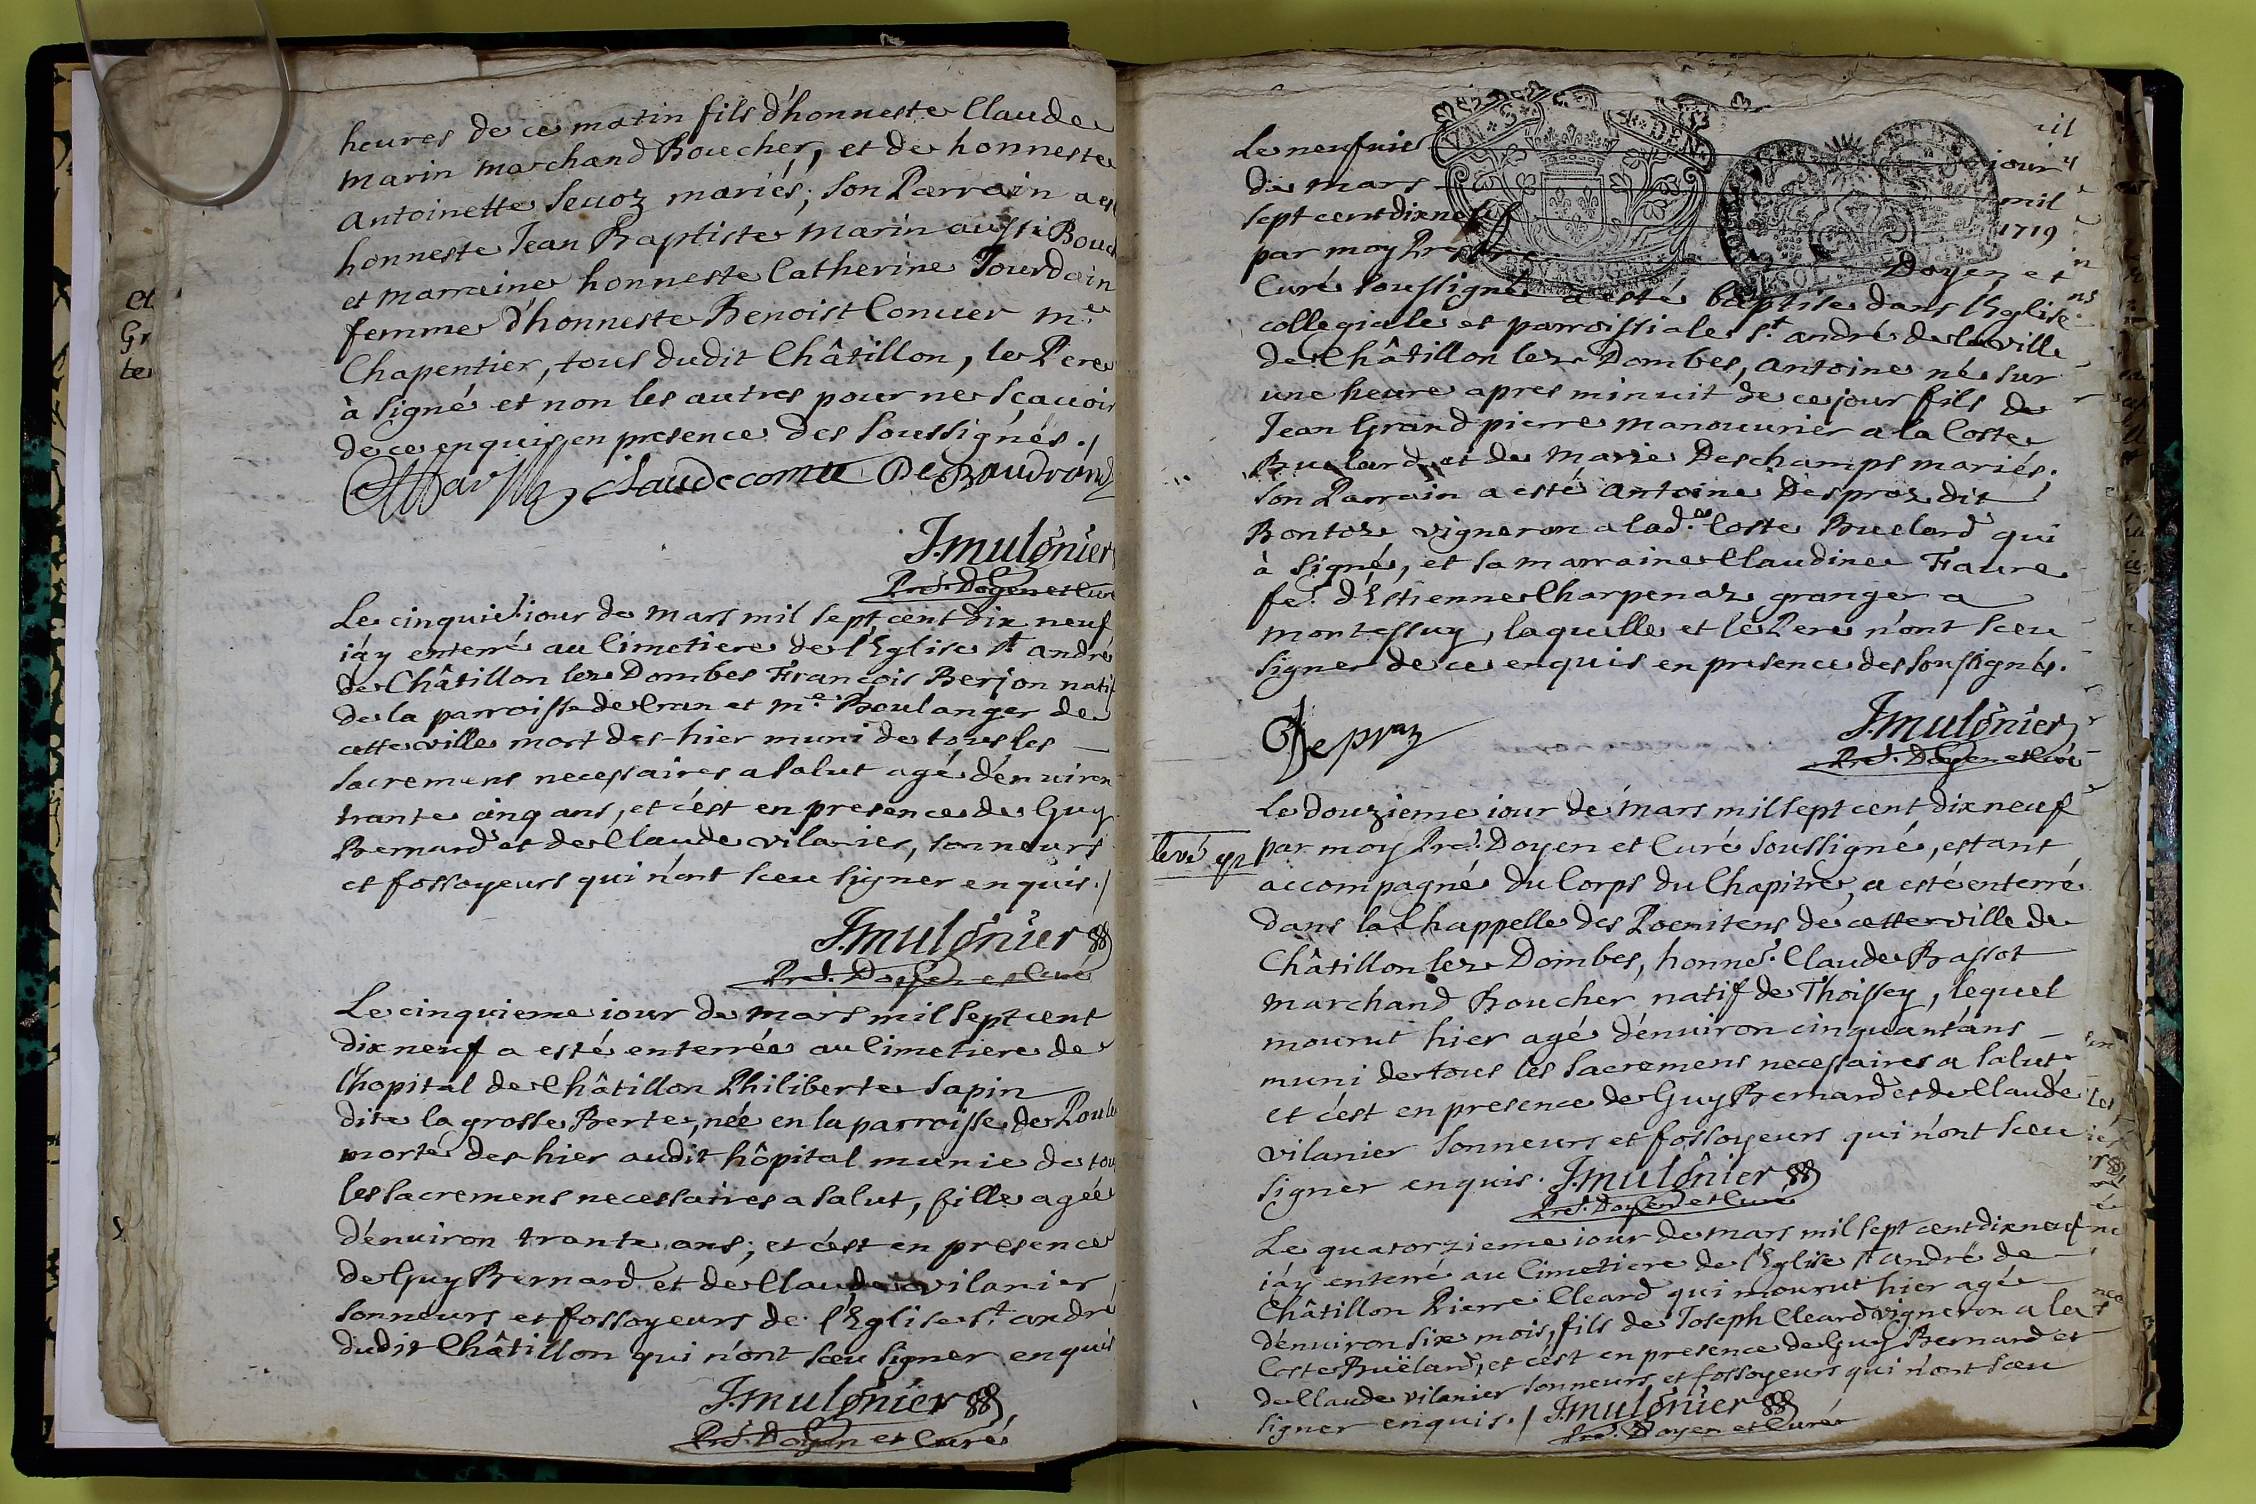 heures de ce matin fils d'honneste Claude
Marin marchand Boucher, et de honneste
Antoinette Sevoz mariés; son Parrain a es
honneste Jean Baptiste Marin aussi Bouch
et marraine honneste Catherine Jourdain
femme d'honneste Benoist Convier me
Chapentier, tous dudit Châtillon, le Pere
à signé et non les autres pour ne sçavoir
de ce enquis, en presence des soussignés./
Claude comte De Baudrand
J. mulônier
Pre. Doyen et Curé
Le cinquie. iour de mars mil sept cent dix neuf
i'ay enterré au Cimetiere de l'Eglise st andré
de Châtillon lez Dombes François Berjon natif
de la parroisse de Cran et me. Boulanger de
cette ville mort des-hier muni de tous les —
sacremens necessaires a salut agé d'environ
trante cinq ans, et c'est en presence de Guy
Bernard et de Claude vilanier, sonneurs
et fossoyeurs qui n'ont sceu signer enquis./
J. mulônier
Pre. Doyen et Curé
Le cinquieme iour de mars mil sept cent
dix neuf a esté enterrée au Cimetiere de
l'hopital de Châtillon Philiberte Sapin
dite la grosse Berte, née en la parroisse de Poule
morte des hier audit hôpital munie de tou
les sacremens necessaires a salut, fille agée
d'environ trante ans; et c'est en presence
de Guy Bernard et de Claude vilanier
sonneurs et fossoyeurs de l'Eglise st. andré
dudit Châtillon qui n'ont sceu signer enquis
J. mulônier
Pre. Doyen et Curé
et
Gr
te
Le neufvie jour
de mars mil
sept cent dix neuf 1719
par moy Prestre Doyen et
Curé soussigné a esté baptisé dans l'Eglise
collegiale et parroissiale st. andré de la ville
de Châtillon lez Dombes, Antoine né sur
une heure apres minuit de ce jour fils de
Jean Grand pierre manouvrier a la Coste
Buelard et de Marie Deschamps mariés;
son Parrain a esté Antoine Despraz dit
Bontoze vigneron a lad.e Coste Buelard qui
à signé, et sa marraine Claudine Faure
fe. d'Estienne Charpenaz granger a
montessuy, laquelle et le Pere n'ont sceu
signer de ce enquis en presence des soussignés.
Depraz
J. mulônier
Pre. Doyen et Curé
Le douzieme iour de mars mil sept cent dix neuf
levé ex par moy Pre. Doyen et Curé soussigné, estant
accompagné du Corps du Chapitre, a esté enterré
dans la Chappelle des Poenitens de cette ville de
Châtillon lez Dombes, honnet. Claude Brassot
marchand Boucher natif de Thoissey, lequel
mourut hier agé d'environ cinquant'ans —
muni de tous les sacremens necessaires a salut
et c'est en presence de Guy Bernard et de Claude
vilanier sonneurs et fossoyeurs qui n'ont sceu
signer enquis. J. mulônier
Pre. Doyen et Curé
Le quatorzieme iour de mars mil sept cent dix neuf
i'ay enterré au Cimetiere de l'Eglise st andré de —
Châtillon Pierre Cleard qui mourut hier agé
d'environ six mois, fils de Joseph Cleard vigneron a la
Coste Buëland, et c'est en presence de Guy Bernard et
de Claude vilanier sonneurs et fossoyeurs qui n'ont sceu
signer enquis./ J. mulônier
Pre. Doyen et Curé